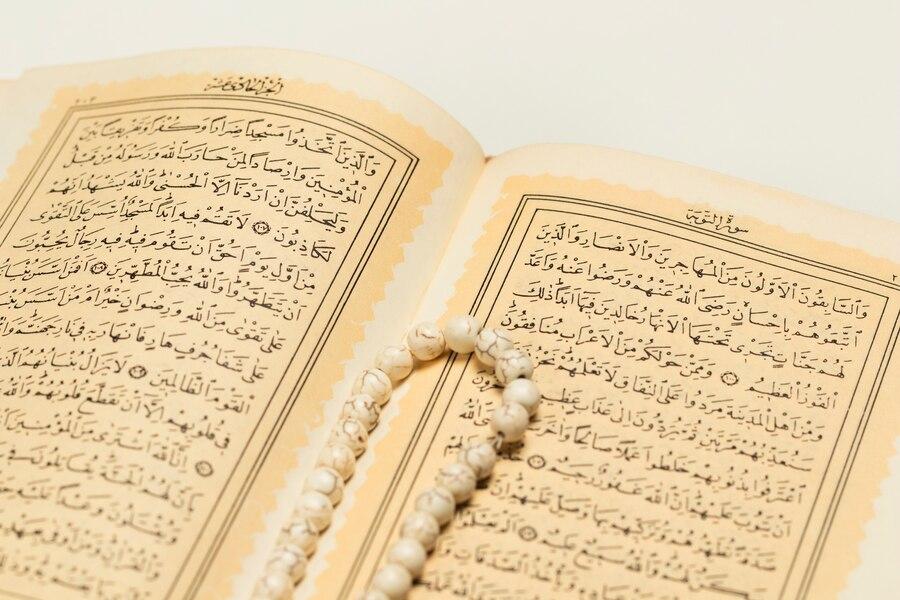 سورة التوبة
وَالسَّابِقُونَ الْأَوَّلُونَ مِنَ الْمُهَاجِرِينَ وَالْأَنْصَارِ وَالَّذِينَ
اتَّبَعُوهُمْ بِإِحْسَانٍ رَضِيَ اللَّهُ عَنْهُمْ وَرَضُوا عَنْهُ وَأَعَدَّ
لَهُمْ جَنَّاتٍ تَجْرِي تَحْتَهَا الْأَنْهَارُ خَالِدِينَ فِيهَا أَبَدًا ذَلِكَ
الْفَوْزُ الْعَظِيمُ وَمِمَّنْ حَوْلَكُمْ مِنَ الْأَعْرَابِ مُنَافِقُونَ
وَمِنْ أَهْلِ الْمَدِينَةِ مَرَدُوا عَلَى النِّفَاقِ لَا تَعْلَمُهُمْ نَحْنُ
سَنُعَذِّبُهُمْ مَرَّتَيْنِ ثُمَّ يُرَدُّونَ إِلَى عَذَابٍ عَظِيمٍ
اعْتَرَفُوا بِذُنُوبِهِمْ خَلَطُوا عَمَلًا صَالِحًا وَآخَرَ اللَّهُ
أَنْ يَتُوبَ عَلَيْهِمْ إِنَّ اللَّهَ غَفُورٌ رَحِيمٌ
صَدَقَةً تُطَهِّرُهُمْ وَتُزَكِّيهِمْ بِهَا وَصَلِّ عَلَيْهِمْ إِنَّ
سَكَنٌ لَهُمْ وَاللَّهُ سَمِيعٌ عَلِيمٌ
وَيَأْخُذُ الصَّدَقَاتِ
الجزء الحادي عشر
٢٠٣
وَالَّذِينَ اتَّخَذُوا مَسْجِدًا ضِرَارًا وَكُفْرًا وَتَفْرِيقًا بَيْنَ
الْمُؤْمِنِينَ وَإِرْصَادًا لِمَنْ حَارَبَ اللَّهَ وَرَسُولَهُ مِنْ قَبْلُ
وَلَيَحْلِفُنَّ إِنْ أَرَدْنَا إِلَّا الْحُسْنَى وَاللَّهُ يَشْهَدُ إِنَّهُمْ
لَكَاذِبُونَ ١٠٧ لَا تَقُمْ فِيهِ أَبَدًا لَمَسْجِدٌ أُسِّسَ عَلَى التَّقْوَى
مِنْ أَوَّلِ يَوْمٍ أَحَقُّ أَنْ تَقُومَ فِيهِ فِيهِ رِجَالٌ يُحِبُّونَ
أَنْ يَتَطَهَّرُوا وَاللَّهُ يُحِبُّ الْمُطَّهِّرِينَ ١٠٨ أَفَمَنْ أَسَّسَ بُنْيَانَهُ
عَلَى تَقْوَى مِنَ اللَّهِ وَرِضْوَانٍ خَيْرٌ أَمْ مَنْ أَسَّسَ بُنْيَانَهُ
عَلَى شَفَا جُرُفٍ هَارٍ فَانْهَارَ بِهِ فِي نَارِ جَهَنَّمَ وَاللَّهُ
الْقَوْمَ الظَّالِمِينَ لَا يَزَالُ بُنْيَانُهُمُ الَّذِي
فِي قُلُوبِهِمْ إِلَّا أَنْ تَقَطَّعَ قُلُوبُهُمْ وَاللَّهُ
إِنَّ اللَّهَ اشْتَرَى مِنَ الْمُؤْمِنِينَ
بِأَنَّ لَهُمُ الْجَنَّةَ يُقَاتِلُونَ فِي
وَيُقْتَلُونَ وَعْدًا عَلَيْهِ